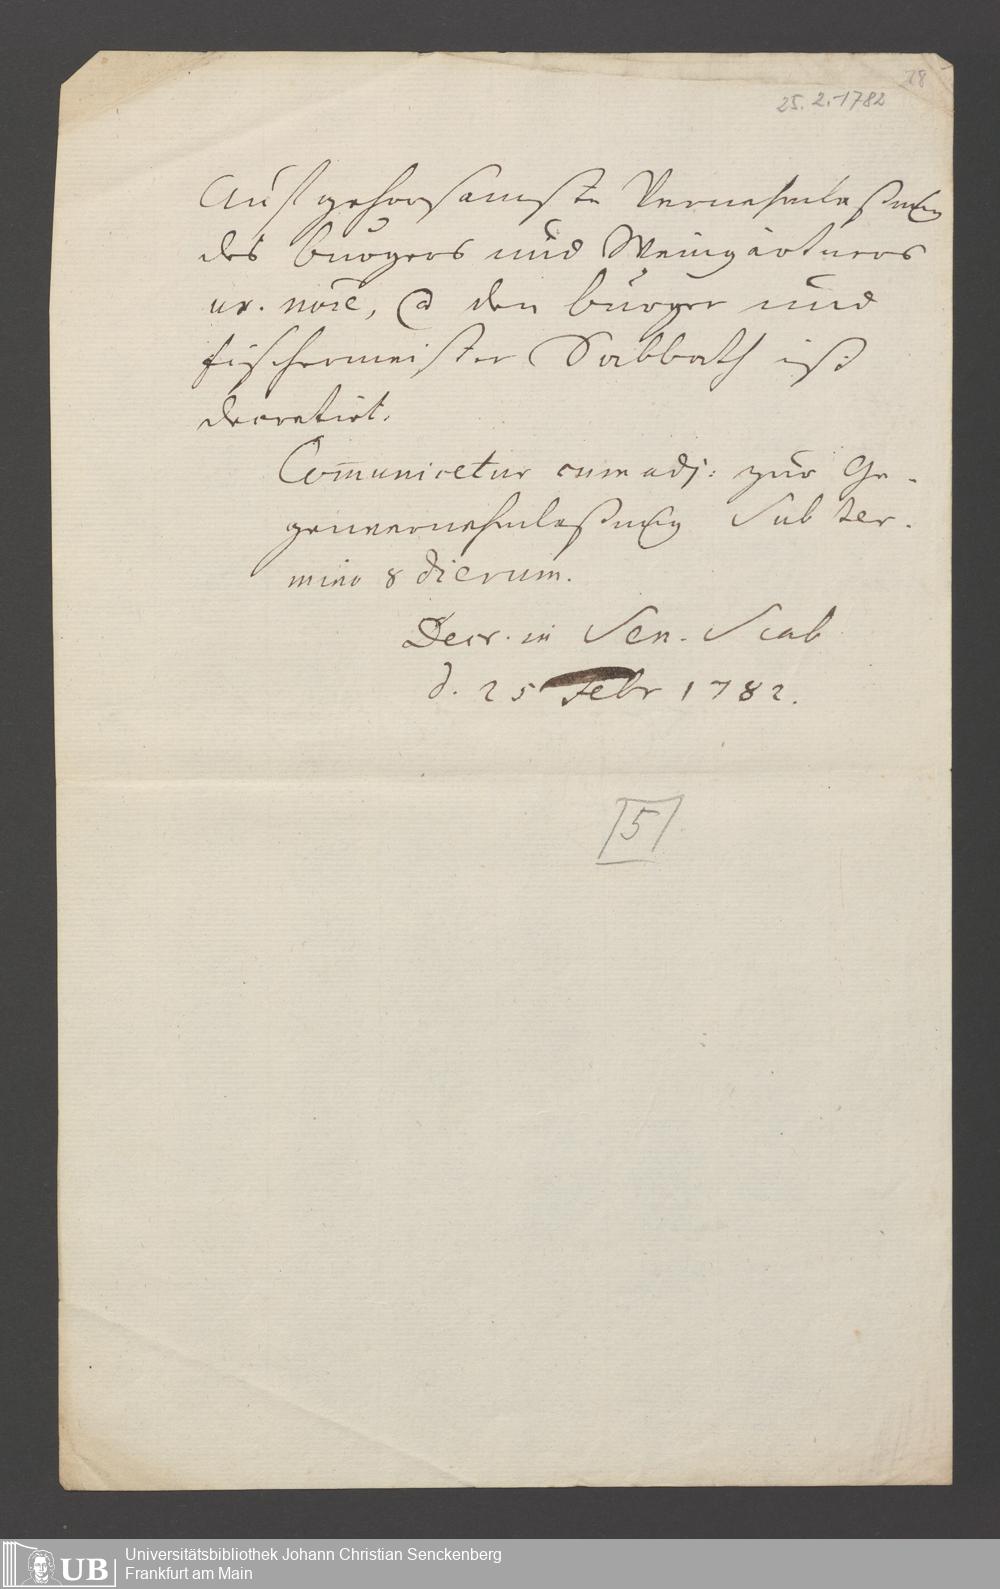 18
25.2.1782
Auf gehorsamste Vernehmlaßung
des burgers und Weingärtners
ux. noīe, ca den burger und
fischermeister Sabbath ist
decretirt.
Com̄unicetur cum adj: zur Ge-
genvernehmlaßung Sub ter-
mino 8 dierum.
Decr. in Sen. Scab
d. 25 Febr 1782.
5
UB
Universitätsbibliothek Johann Christian Senckenberg
Frankfurt am Main